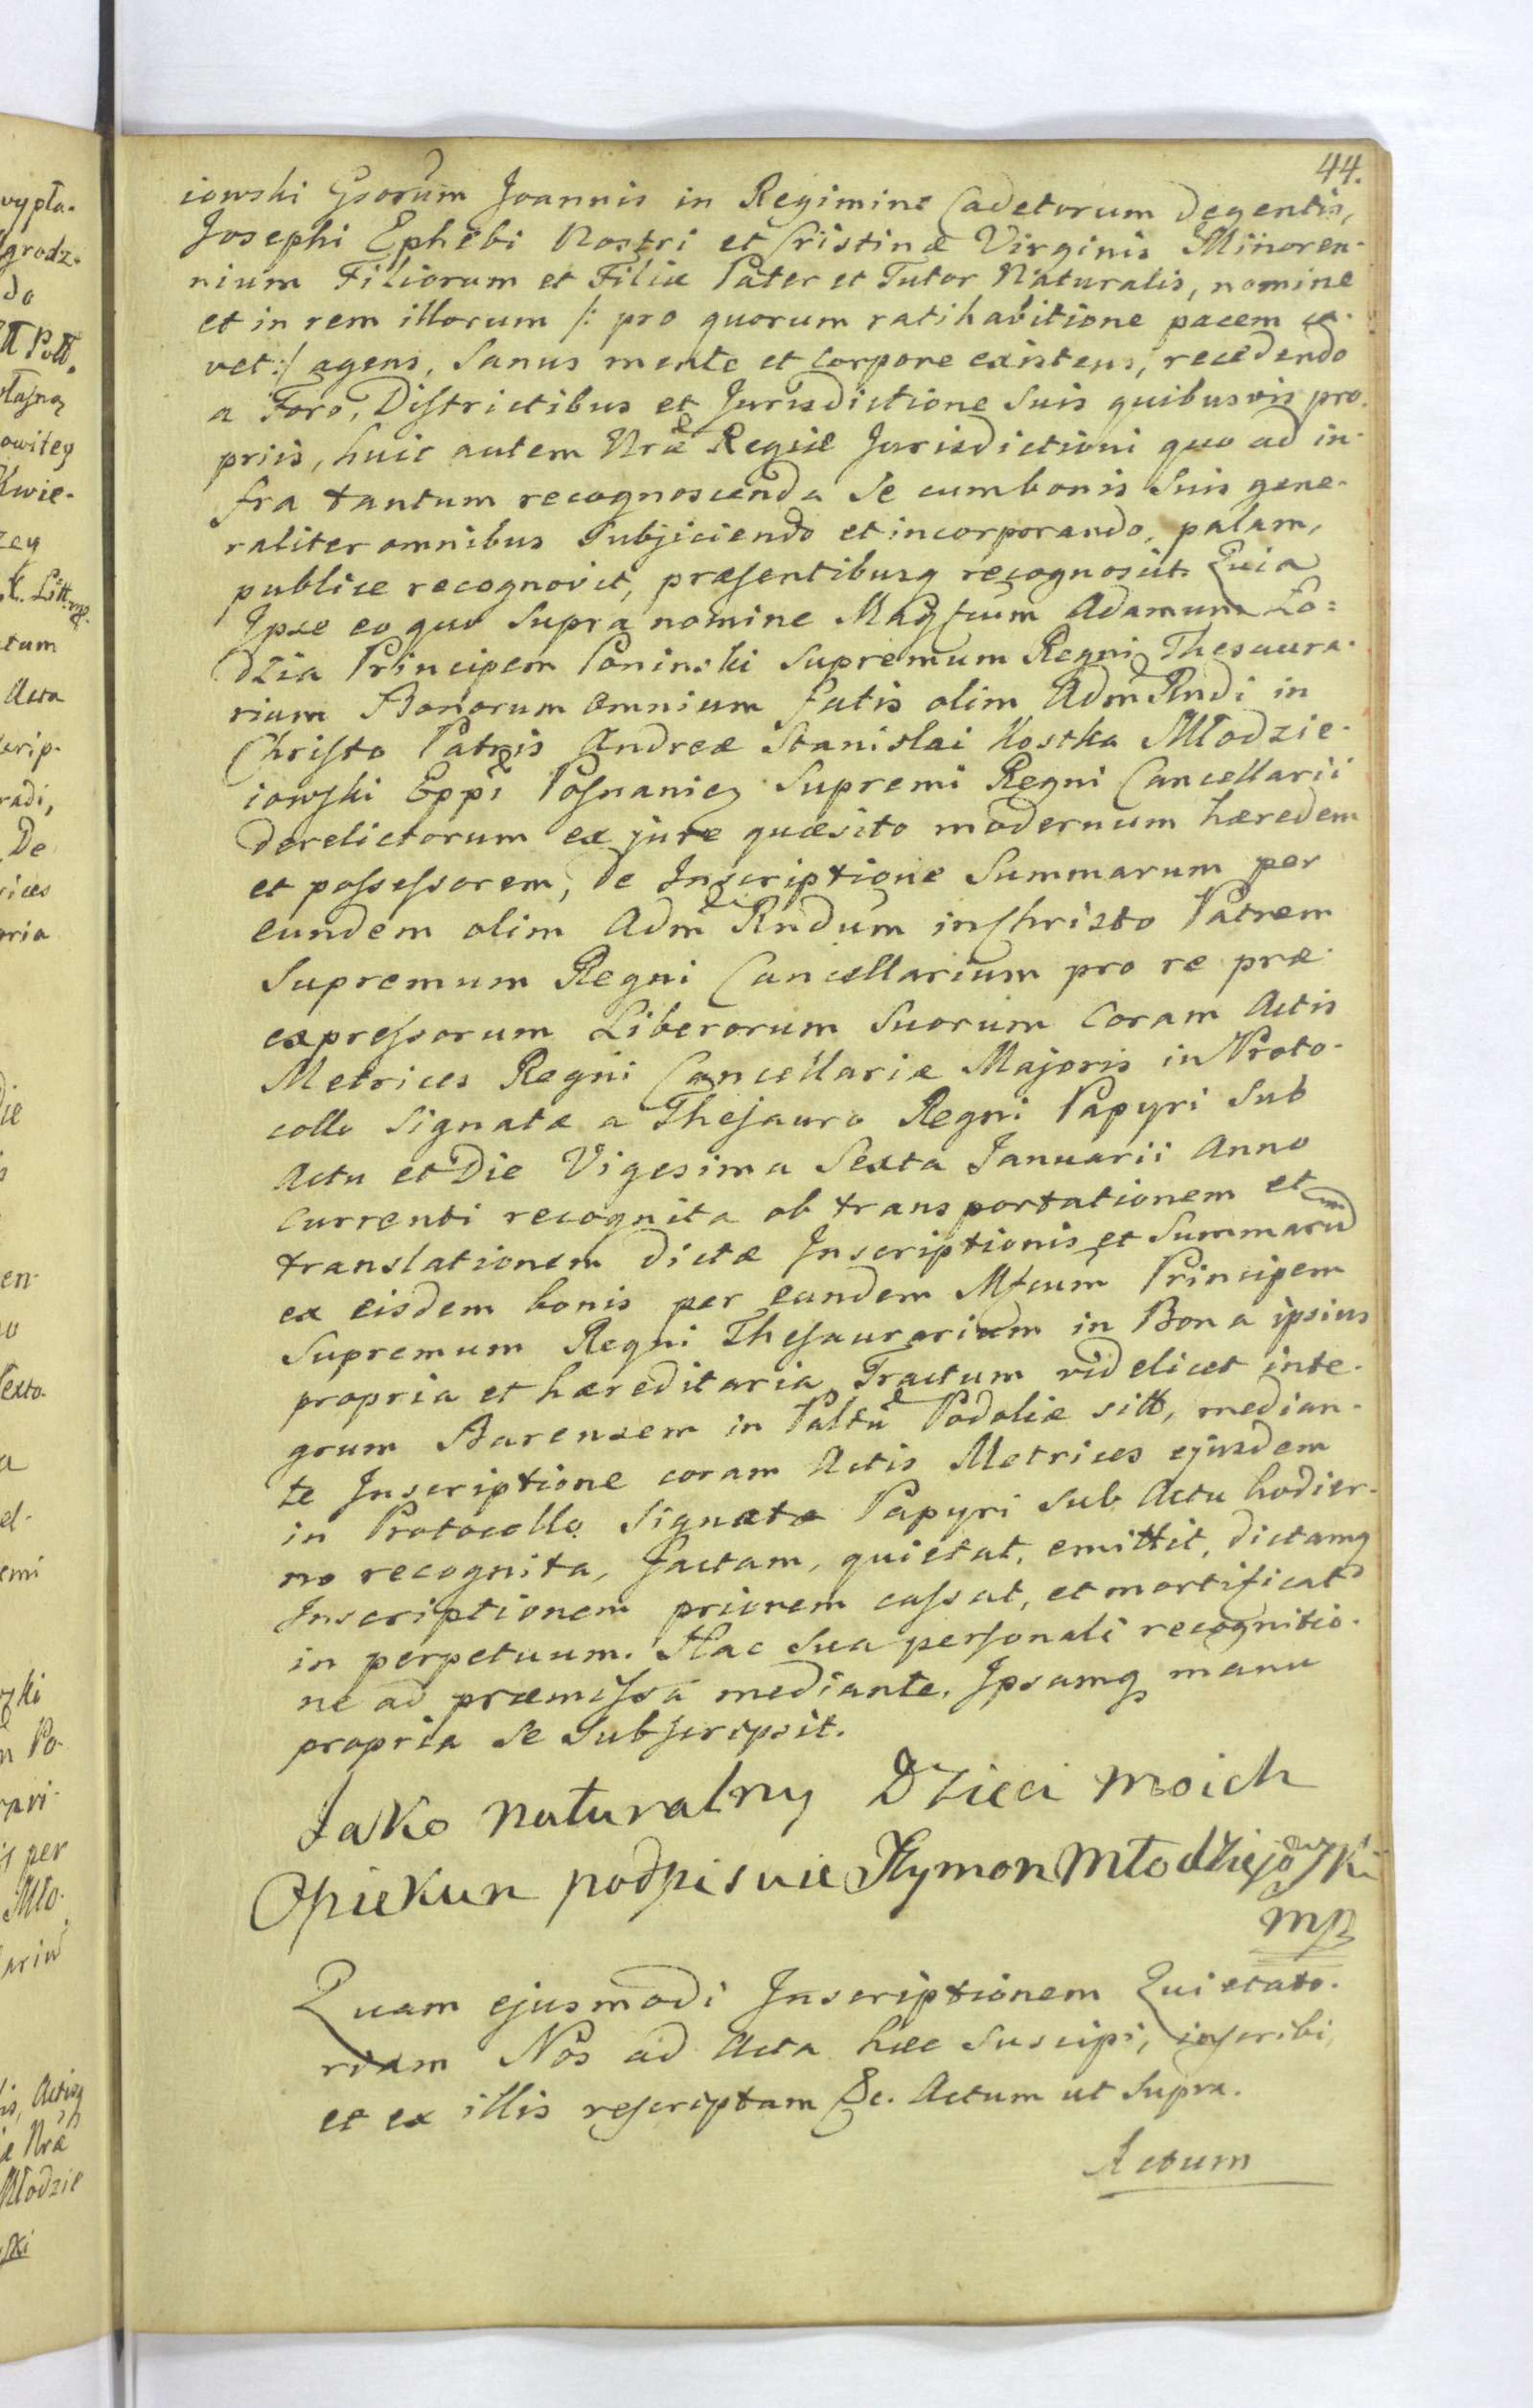 44.
iowski Gsorum Joannis in Regimine Cadetorum degentis,
Josephi Ephebi Nostri et Cristinæ Virginis Minoren-
nium Filiorum et Filiæ Pater et Tutor Naturalis, nomine
et in rem illorum /: pro quorum ratihabitione pacem ca-
vet :/ agens, Sanus mente et Corpore existens, recedendo
a Foro, Districtibus et Jurisdictione Suis quibusvis pro-
priis, huic autem Nræ Regiæ Jurisdictioni quo ad in-
fra tantum recognoscenda Se cum bonis Suis gene-
raliter omnibus Subjiciendo et incorporando, palam,
publice recognovit, præsentibusq recognoscit. Quia
Ipse eo quo Supra nomine Magfcum Adamum Ło=
dzia Principem Poninski Supremum Regni Thesaura-
rium Bonorum omnium fatis olim Adm Rndi in
Christo Patris Andreæ Stanislai Kostka Młodzie-
iowski Eppi Posnanien Supremi Regni Cancellarii
derelictorum ex jure quæsito modernum hæredem
et possessorem, de Inscriptione Summarum per
eundem olim Adm Rndum in Christo Patrem
Supremum Regni Cancellarium pro re præ-
expressorum Liberorum Suorum Coram Actis
Metrices Regni Cancellariæ Majoris in Proto-
collo Signatæ a Thesauro Regni Papyri Sub
Actu et Die Vigesima Sexta Januarii Anno
Currenti recognita ob transportationem et
translationem dictæ Inscriptionis et Summarum
ex eisdem bonis per eundem Mfcum Principem
Supremum Regni Thesaurarium in Bona ipsius
propria et hæreditaria Tractum videlicet inte-
grum Barensem in Paltu Podoliæ sitt, median-
te Inscriptione coram Actis Metrices ejusdem
in Protocollo Signatæ Papyri Sub Actu hodier-
no recognita, factam, quietat, emittit, dictamq
Inscriptionem priorem cassat, et mortificat
in perpetuum. Hac Sua personali recognitio-
ne ad præmissa mediante. Ipsamq manu
propria Se Subscripsit.
Jako naturalny Dzieci moich
Opiekun podpisuie Szymon Młodziejowski
mp
Quam ejusmodi Inscriptionem Quietato-
riam Nos ad Acta hæc Suscipi, inscribi,
et ex illis rescriptam &c. Actum ut Supra.
Actum